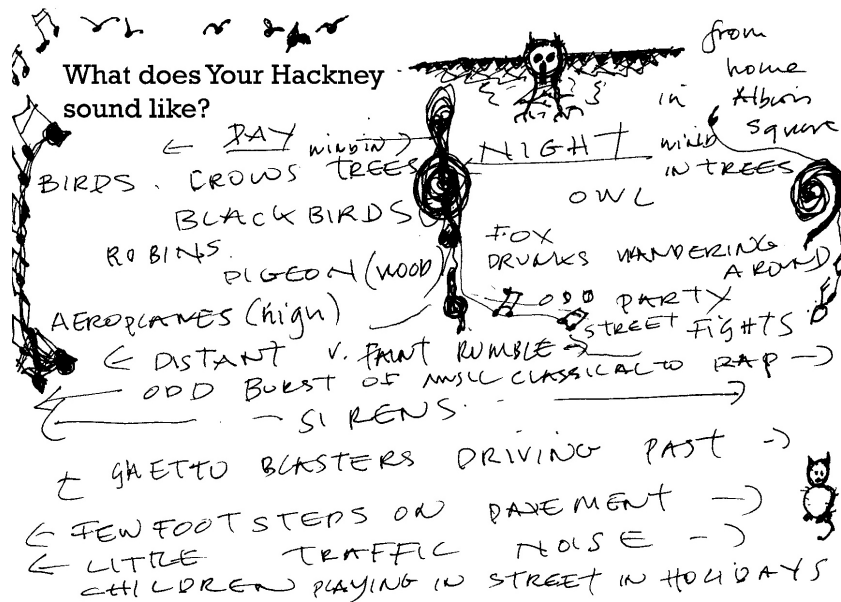 What does Your Hackney
sound like?
from
home
in Albion
Square
← DAY →
wind in
TREES
BIRDS. CROWS
BLACKBIRDS
ROBINS.
PIGEON (WOOD)
AEROPLANES (high)
NIGHT
WIND
IN TREES
OWL
FOX
DRUNKS WANDERING
AROUND
ODD PARTY
STREET FIGHTS
← DISTANT V. FAINT RUMBLE →
← ODD BURST OF MUSIC CLASSICAL TO RAP →
← SIRENS. →
← GHETTO BLASTERS DRIVING PAST →
← FEW FOOTSTEPS ON PAVEMENT →
← LITTLE TRAFFIC NOISE →
CHILDREN PLAYING IN STREET IN HOLIDAYS